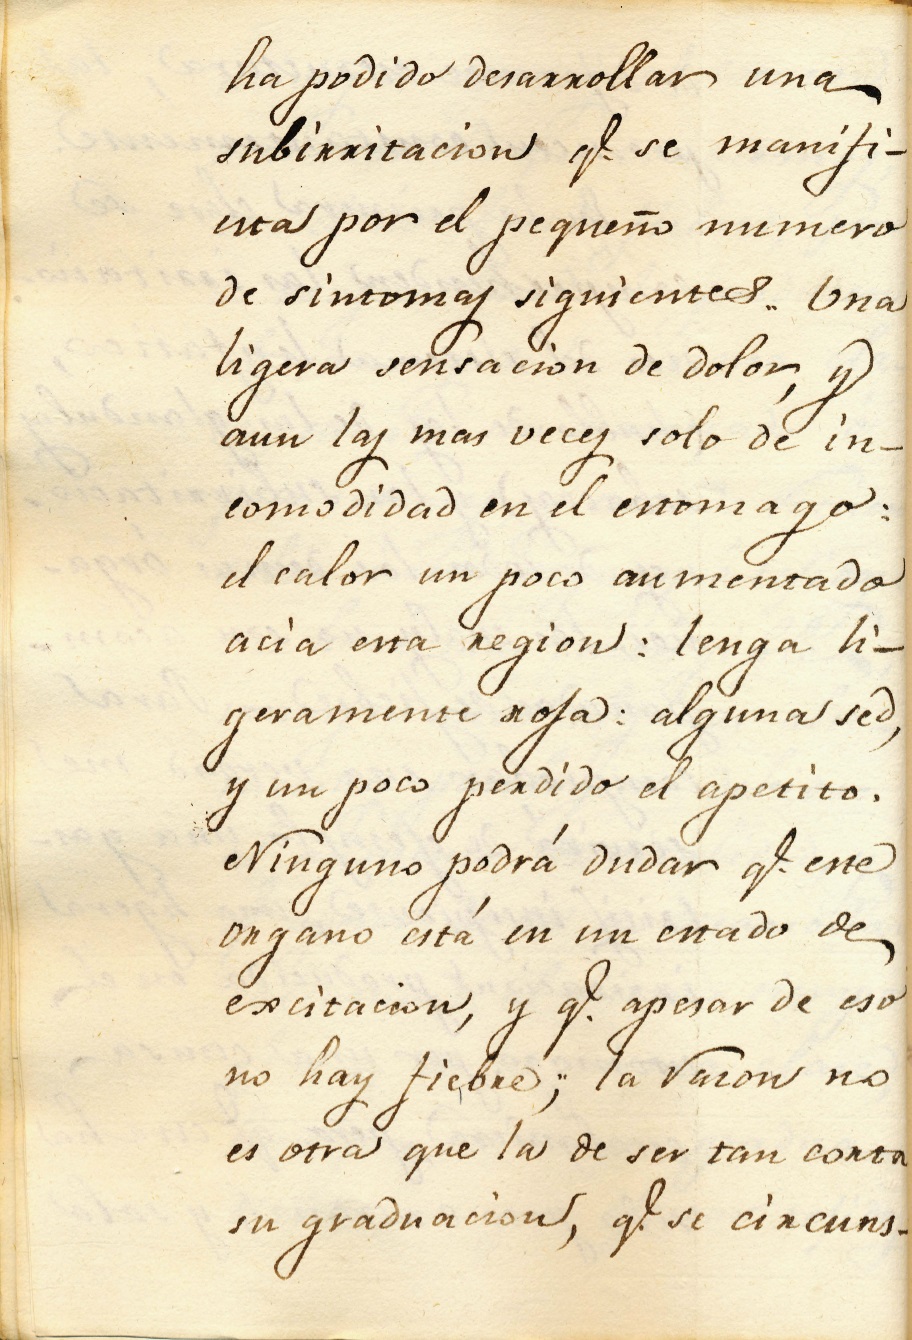 ha podido desarrollar una
subirritacion q.e se manifi-
esta por el pequeño numero
de sintomas siguientes.. Una
ligera sensacion de dolor, y
aun las mas veces solo de in-
comodidad en el estomago:
el calor un poco aumentado
acia esta region: lenga li-
geramente rosa: alguna sed,
y un poco perdido el apetito.
Ninguno podrá dudar q.e este
organo está en un estado de
excitacion, y q.e apesar de eso
no hay fiebre; la rason no
es otra que la de ser tan corta
su graduacion, q.e se circuns-